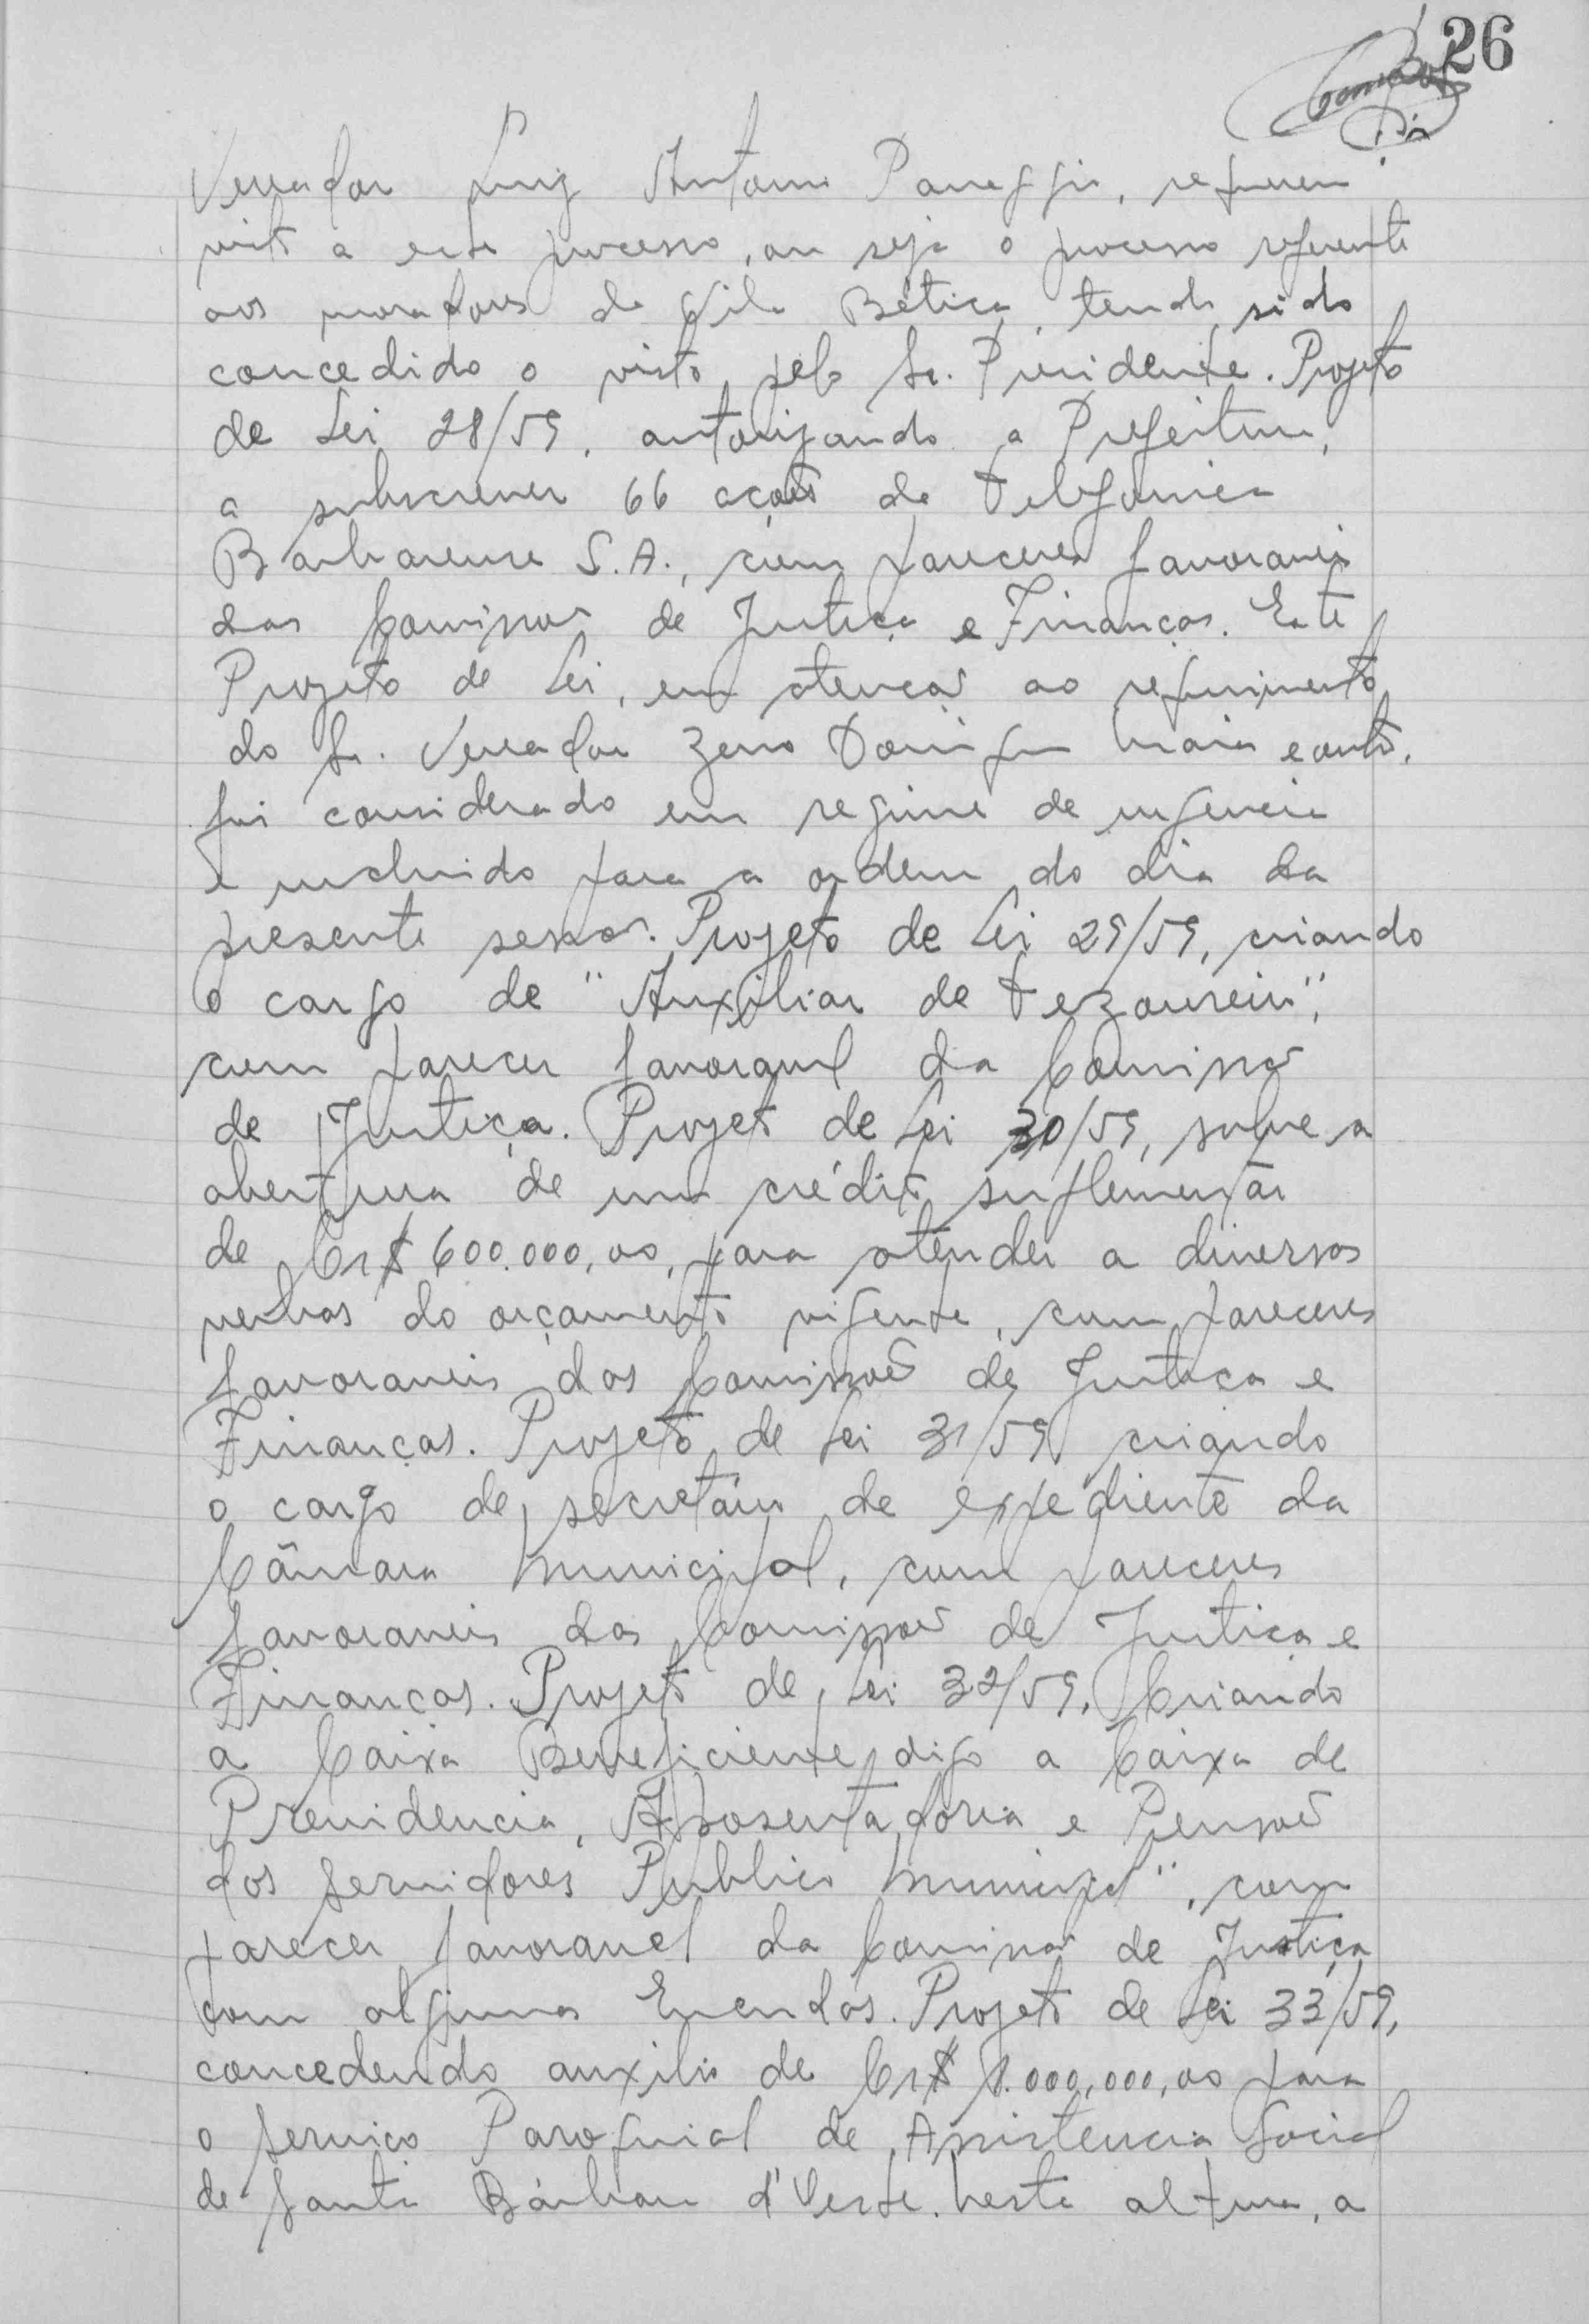 26
Vereador Luiz Antonio Paneggio, requereu
visto a este processo, ou seja o processo referente
aos moradores da Vila Bética, tendo sido
concedido o visto pelo Sr. Presidente. Projeto
de Lei 28/59, autorizando a Prefeitura,
a subscrever 66 ações da Telefonica
Barbarense S.A., com pareceres favoraveis
das Comissões de Justiça e Finanças. Este
Projeto de Lei, em atenção ao requerimento
do Sr. Vereador Zeno Domingues Maia e outros,
foi considerado em regime de urgencia
e incluido para a ordem do dia da
presente sessão. Projeto de Lei 29/59, criando
o cargo de "Auxiliar de Tezoureiro",
com parecer favoravel da Comissão
de Justiça. Projeto de Lei 30/59, sobre a
abertura de um crédito suplementar
de Cr$ 600.000,00, para atender a diversas
verbas do orçamento vigente, com pareceres
favoraveis das Comissões de Justiça e
Finanças. Projeto de Lei 31/59 criando
o cargo de secretário de expediente da
Câmara Municipal, com pareceres
favoraveis das Comissões de Justiça e
Finanças. Projeto de Lei 32/59, Criando
a Caixa Beneficiente, digo a Caixa de
Previdencia, Aposentadoria e Pensões
dos Servidores Publico Municipal", com
parecer favoravel da Comissão de Justiça
com algumas Emendas. Projeto de Lei 33/59,
concedendo auxilio de Cr$ 1.000,000,00 para
o Serviço Paroquial de Assistencia Social
de Santa Bárbara d'Oeste. Nesta altura, a